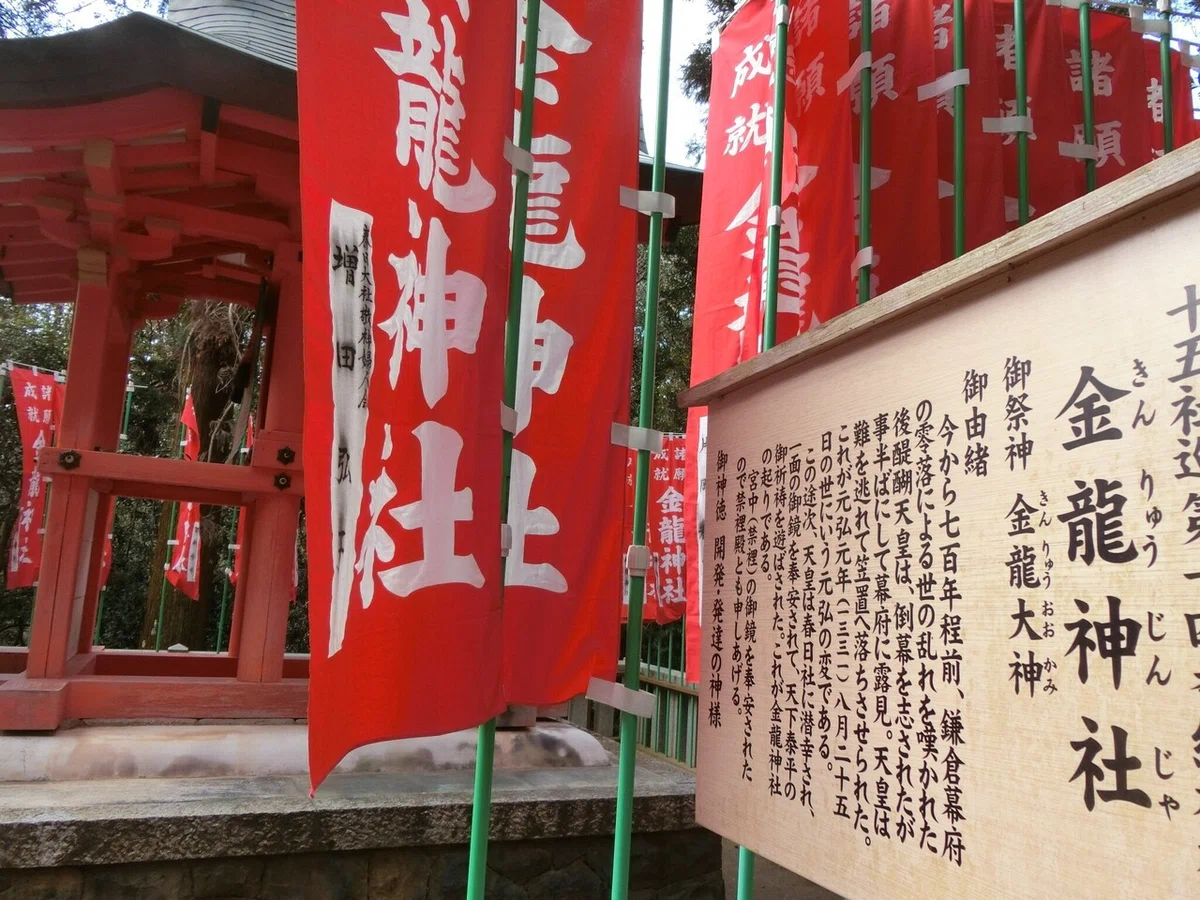 金龍神社
きんりゅうじんじゃ
御祭神 金龍大神
きんりゅうおおかみ
御由緒
今から七百年程前、鎌倉幕府
の零落による世の乱れを嘆かれた
後醍醐天皇は、倒幕を志されたが
事半ばにして幕府に露見。天皇は
難を逃れて笠置へ落ちさせられた。
これが元弘元年(一三三一)八月二十五
日の世にいう元弘の変である。
この途次、天皇は春日社に潜幸され、
一面の御鏡を奉安されて、天下泰平の
御祈祷を遊ばされた。これが金龍神社
の起りである。
宮中(禁裡)の御鏡を奉安された
ので禁裡殿とも申しあげる。
御神徳 開発・発達の神様
諸願
諸願
成就
金龍神社
龍神社
増田弘
諸願
成就
金龍神社
諸願
成就